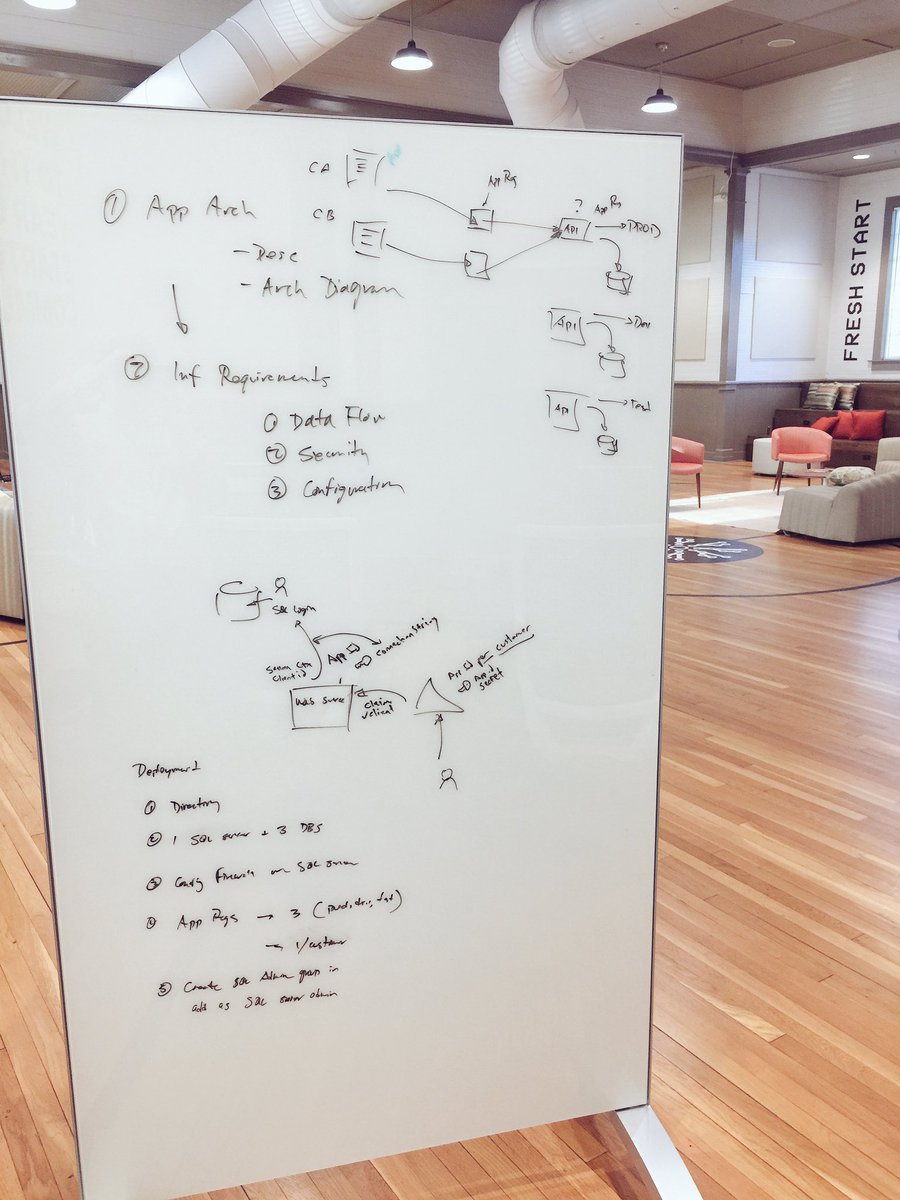 CA
App Reg
① App Arch
CB
?
App Rg
API
PROD
- Desc
- Arch Diagram
API
Dev
② Inf Requirements
API
Test
① Data Flow
② Security
③ Configuration
SQL Login
App Id
Connection String
client id
App Id per customer
App id
secret
Web Service
claim
Deployment
① Directory
② 1 SQL server + 3 DBS
③ Config Firewalls on SQL server
④ App Regs → 3 (prod, dev, test)
→ 1/customer
⑤ Create SQL Admin group in
add as SQL server admin
FRESH START